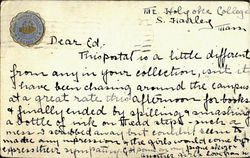 Mt. Holyoke College
S. Hadley
Mass
Dear Ed,
This postal is a little different
from any in your collection, isn't it
I have been chasing around the campus
at a great rate this afternoon for books
& finally ended by spilling & smashing
a bottle of ink on the steps & made a
mess. I scrubbed away but couldn't seem to
make any impression & the girls would come &
sympathize
another